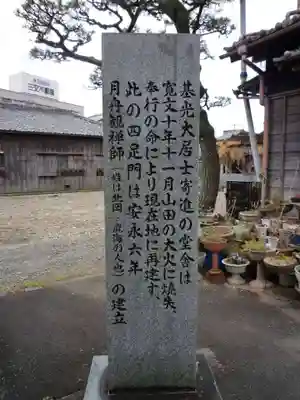 基光大居士寄進の堂舎は
寛文十年十一月山田の大火に焼失、
奉行の命により現在地に再建す、
此の四足門は安永六年
月舟観禅師(姓は北岡 鳥海の人也)の建立